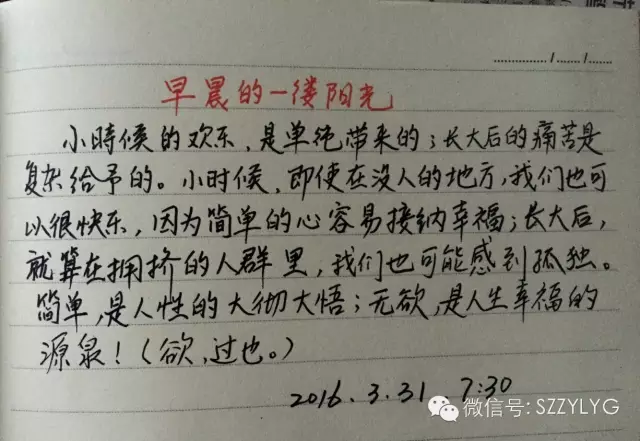 早晨的一缕阳光
小時候的欢乐,是单纯带来的;长大后的痛苦是
复杂给予的。小时候,即使在没人的地方,我们也可
以很快乐,因为简单的心容易接纳幸福;长大后,
就算在拥挤的人群里,我们也可能感到孤独。
简单,是人性的大彻大悟;无欲,是人生幸福的
源泉!(欲,过也。)
2016.3.31 7:30
微信号: SZZYLYG